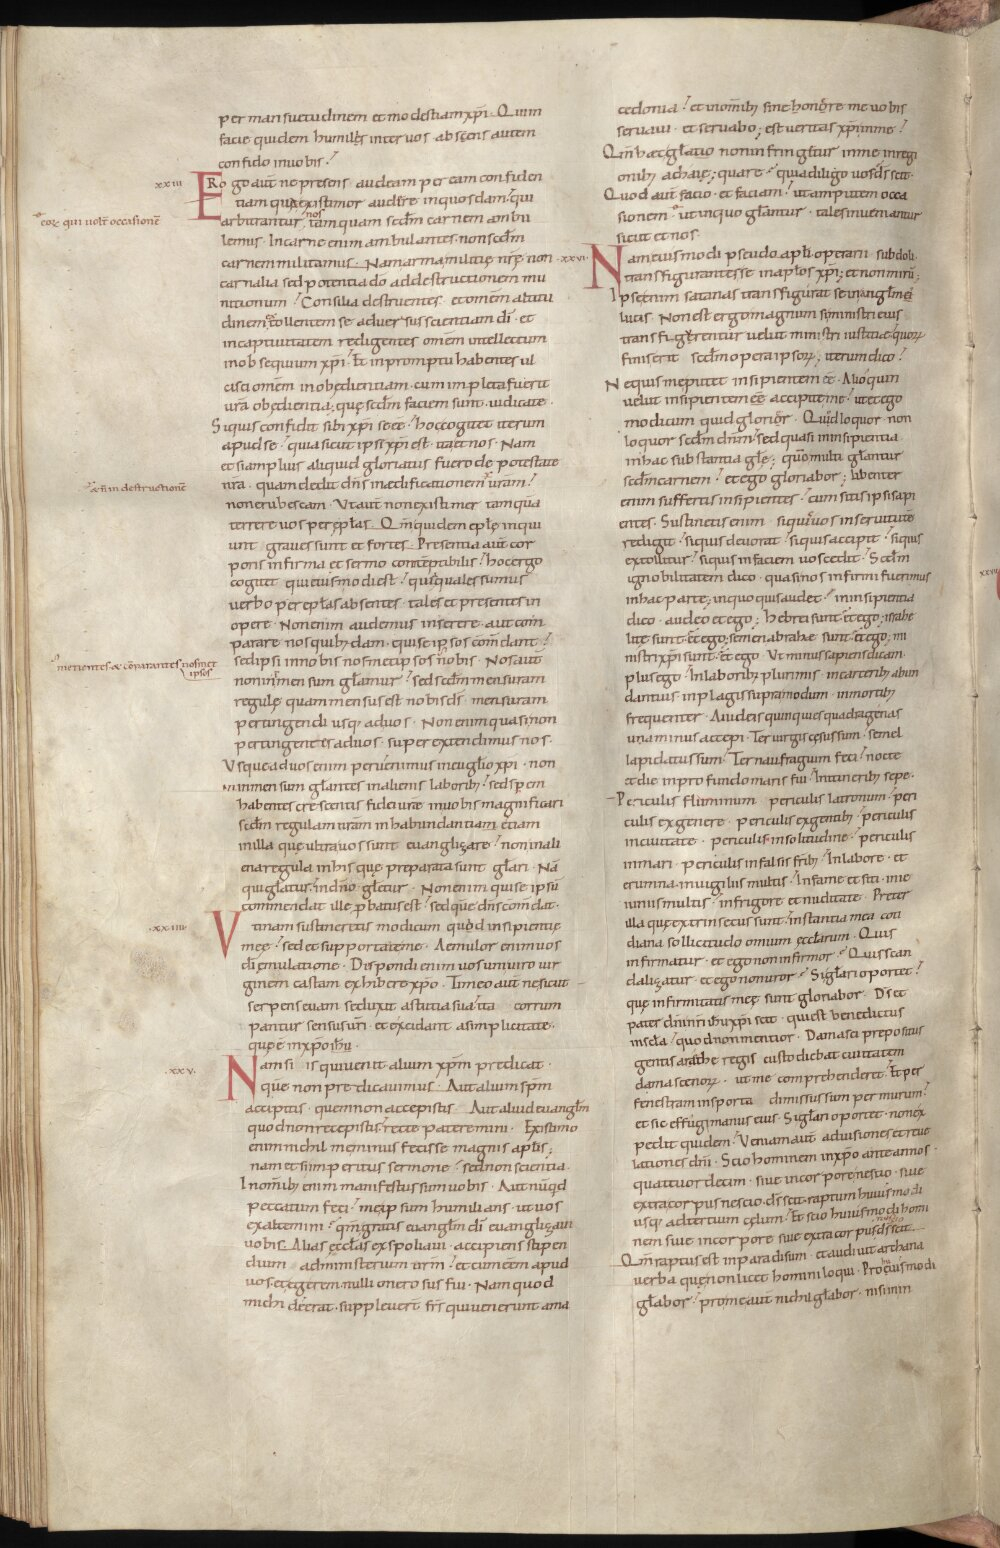 per mansuetudinem et modestiam xp̄i. Qui in
facie quidem humilis inter vos absens autem
confido in uobis.
xxiii
ERogo aut̄ ne presens audeam per eam confiden
tiam qua existimor audere in quosdam. qui
c̄orꝫ qui uolt̄ occasionē
arbitrantur nos tamquam scđm carnem ambu
lemus. In carne enim ambulantes. non scđm
carnem militamus. Nam arma militię nr̄ę non
carnalia sed potentia dō. ad destructionem mu
nitionum. Consilia destruentes. et omēm altitu
dinem extollentem se aduersus scientiam dī. et
in captiuitatem redigentes omēm intellectum
in obsequium xp̄i. Et in promptu habentes ul
cisci omēm inobedientiam. cum impleta fuerit
ur̄a obedientia; quę scđm faciem sunt. uidicate.
Siquis confidit sibi xp̄i se eē. hoc cogitet iterum
apud se. quia sicut ipse xp̄i est. ita et nos. Nam
et si amplius aliquid gloriatus fuero de potestate
& n̄ in destructionē
nr̄a. quam dedit dn̄s in aedificationem ur̄am.
non erubescam. Ut aut̄ non existimer tamquā
terrere uos per ep̄las. Qm̄ quidem eplę inqui
unt graues sunt et fortes. Presentia aut̄ cor
poris infirma et sermo contemptibilis. hoc ergo
cogitet qui eiusmodi est. quia quales sumus
uerbo per ep̄las absentes. tales et presentes in
opere. Non enim audemus inserere. aut com
parare nos quibusdam. qui se ipsos com̄dant.
metientes & cōparantes nosmet ipsos
sed ipsi in nobis nosmet ipsos n̄obis. Nos aut̄
non in inmensum gl̄amur. sed scđm mensuram
regulę quam mensus est nobis ds̄. mensuram
pertingendi usq; ad uos. Non enim quasi non
pertingentes ad uos. superextendimus nos.
Usque ad uos enim peruenimus in euglio xp̄i. non
in inmensum gl̄antes in alienis laborib;. sed spem
habentes crescentis fidei ur̄ae in uobis magnificari
scđm regulam nr̄am in habundantiam. etiam
in illa quę ultra uos sunt euangelizare. non in ali
ena regula in his quę preparata sunt gl̄ari. Nā
qui gl̄atur. in dn̄o gl̄etur. Non enim qui se ipsū
commendat ille probatus est. sed quē dn̄s com̄dat.
.xxiiii.
Utinam sustineretis modicum quid insipientię
meę. sed et supportate me. Aemulor enim uos
dī emulatione. Dispondi enim uos uni uiro uir
ginem castam exhibere xp̄o. Timeo aut̄ ne sicut
serpens euam seduxit astutia sua. ita corrum
pantur sensus ur̄i. et excidant a simplicitate.
quę ē in xp̄o ih̄u.
.xxv.
Nam si is qui uenit alium xp̄m predicat.
quē non predicauimus. Aut alium sp̄m
accipitis. quem non accepistis. Aut aliud euanglm̄
quod non recepistis. recte pateremini. Existimo
enim nichil me minus fecisse magnis aplis;
nam et si imperitus sermone. sed non scientia.
In omib; enim manifestus sum uobis. Aut nūquid
peccatum feci. me ipsum humilians. ut uos
exaltemini. qm̄ gratis euanglm̄ dī euangelizaui
uobis. Alias ecclas expoliaui. accipiens stipen
dium administerium ur̄m. et cum eēm apud
uos. et egerem nulli onerosus fui. Nam quod
michi deerat. suppleuer̄t fr̄s qui uenerunt a ma
cedonia. et in omib; sine honere me uobis
seruaui. et seruabo; est ueritas xp̄i in me.
Qm̄ hęc gl̄atio non infringetur in me in regi
onib; achaię; quare. quia diligo uos ds̄ scit.
Quod aut̄ facio. et faciam. ut amputem occa
sionem. ut in quo gl̄antur. tales inueniantur
sicut et nos.
.xxvi.
Nam eiusmodi pseudo apl̄i operarii subdoli.
transfigurantes se in apl̄os xp̄i; et non mirū;
Ipse enim satanas transfigurat se in anglm̄
lucis. Non est ergo magnum si ministri eius
transfigerentur uelut ministri iustitiae. quorꝫ
finis erit scđm opera ipsorꝫ; iterum dico.
Nequis me putet insipientem eē. Alioquin
uelut insipientem eē accipite me. ut et ego
modicum quid glorior. Quod loquor. non
loquor scđm dn̄m. sed quasi in insipientia
in hac substantia gl̄ę; quō multi gl̄antur
scđm carnem. et ego gloriabor; libenter
enim suffertis insipientes. cum sitis ipsi sapi
entes. Sustinetis enim siquis uos in seruitutē
redigit. siquis deuorat. siquis accipit. siquis
extollitur. siquis in faciem uos cedit. Scđm
ignobilitatem dico. quasi nos infirmi fuerimus
in hac parte; in quo quis audet. in insipientia
dico. audeo et ego; hebrei sunt. et ego; israhe
litę sunt. et ego; semen abrahae sunt. et ego; mi
nistri xp̄i sunt. et ego. Ut minus sapiens dicam.
plus ego. In laborib; plurimis. in carcerib; abun
dantius in plagis supra modum. in mortib;
frequenter. A iudeis quinquies quadragenas
una minus accepi. Ter uirgis cęsus sum. semel
lapidatus sum. Ter naufragium feci. nocte
et die in profundo maris fui. In itinerib; sepe.
Periculis fluminum periculis latronum. peri
culis ex genere. periculis ex gentib;. periculis
in ciuitate. periculis in solitudine. periculis
in mari. periculis in falsis frib;. In labore. et
erumna. in uigiliis multis. In fame et siti. in ie
iuniis multis. in frigore et nuditate. Preter
illa que extrinsecus sunt. instantia mea coti
diana sollicitudo omium ecclarum. Quis
infirmatur. et ego non infirmor. Quis scan
dalizatur. et ego non uror. Si gl̄ari oportet.
quę infirmitatis meę sunt gloriabor. Ds̄ et
pater dn̄i nr̄i ih̄u xp̄i scit. qui est benedictus
in scl̄a. quod non mentior. Damasci prepositus
gentis arathe regis custodiebat ciuitatem
damascenorꝫ. ut me comprehenderet. Et per
fenestram in sporta dimissus sum per murum.
et sic effugi manus eius. Si gl̄ari oportet. non ex
pedit quidem. Veniam aut̄ ad uisiones et reue
lationes dn̄i. Scio hominem in xp̄o ante annos
quattuordecim. siue in corpore nescio. siue
extra corpus nescio. ds̄ scit. raptum huiusmodi
usq; ad tertium cęlum. Et scio huiusmodi homi
nem siue in corpore siue extra corpus nescio ds̄ scit.
Qm̄ raptus est in paradisum. et audiuit archana
uerba quę non licet homini loqui. Pro huiusmodi
gl̄abor. pro me aut̄ nichil gl̄abor. nisi in in